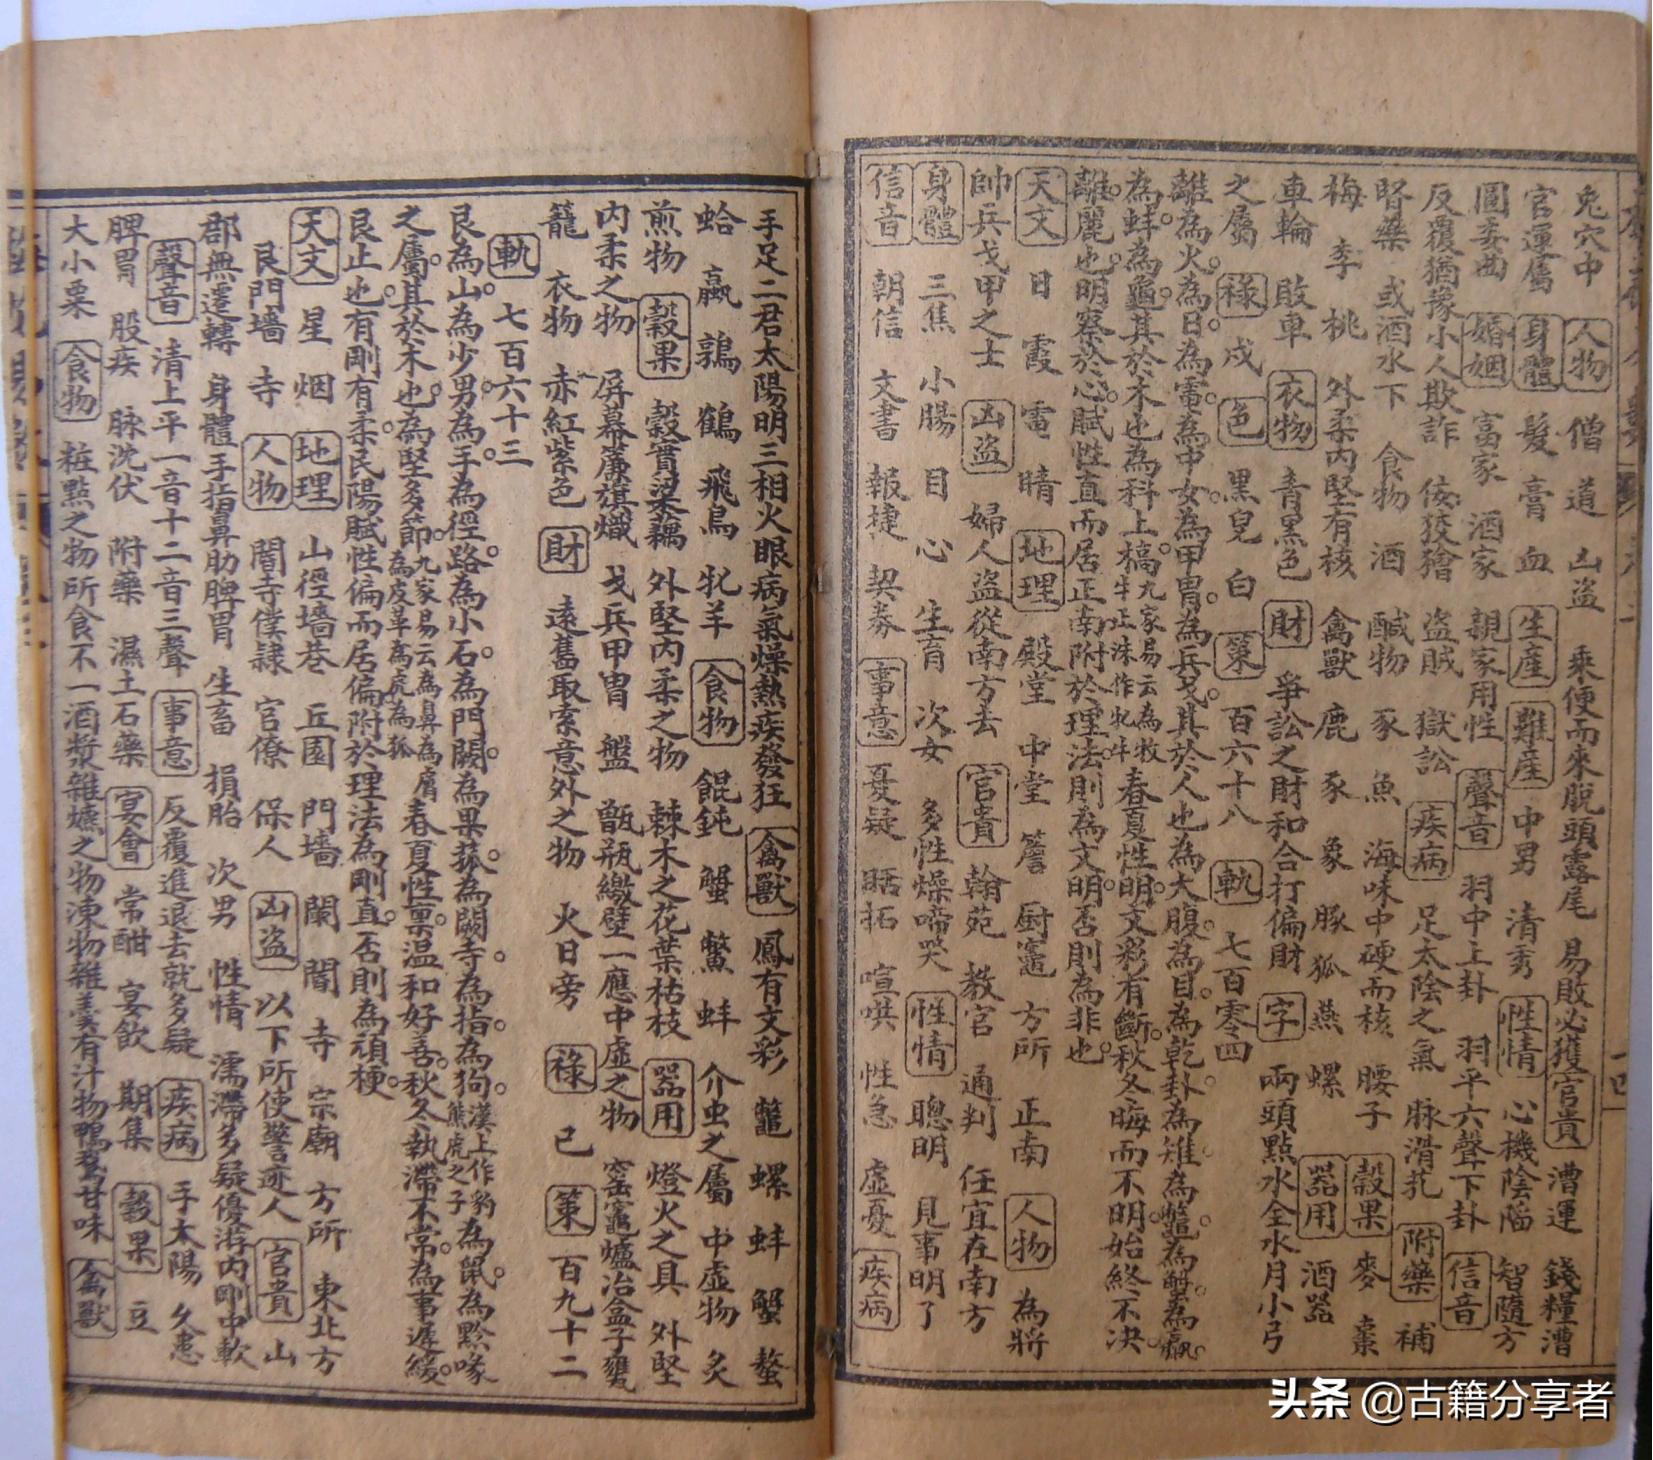 兔穴中 人物 僧 道 凶盜 乘便而來脫頭露尾 易敗必獲 官貴 漕運 錢糧漕
官運屬 身體 髮 膏 血 生產 難產 中男 清秀 性情 心機陰陷 智隨方
圓委曲 婚姻 富家 酒家 親家用性 聲音 羽中上卦 羽平六聲下卦 信音
反覆猶豫小人欺詐 佞狡獪 盜賊 獄訟 疾病 足太陰之氣 脉滑芤 附藥 補
腎藥 或酒水下 食物 酒 鹹物 豕 魚 海味中硬而核 腰子 穀果 麥 棗
梅 李 桃 外柔內堅有核 禽獸 鹿 豕 象 豚 狐 燕 螺 器用 酒器
車輪 敗車 衣物 青黑色 財 爭訟之財和合打偏財 字 兩頭點水全水月小弓
之屬 祿 戌 色 黑皃白 策 百六十八 軌 七百零四
離為火為日為電為中女為甲冑為兵戈其於人也為大腹為目為乾卦為雉為鱉為蟹為蠃
為蚌為龜其於木也為科上槁九家易云為牧牛正洙作牝牛 春夏性明文彩有斷秋冬晦而不明始終不決
離麗也明察於心賦性直而居正南附於理法則為文明否則為非也
天文 日 霞 電 晴 地理 殿堂 中堂 簷 厨竈 方所 正南 人物 為將
帥兵戈甲之士 凶盜 婦人盜從南方去 官貴 翰苑 教官 通判 任宜在南方
身體 三焦 小腸 目 心 生育 次女 多性燥啼哭 性情 聰明 見事明了
信音 朝信 文書 報捷 契券 事意 憂疑 聒括 喧哄 性急 虛憂 疾病
手足二君太陽明三相火眼病氣燥熱疾發狂 禽獸 鳳有文彩 龜 螺 蚌 蟹 螯
蛤 蠃 鶉 鶴 飛鳥 牝羊 食物 餛飩 蟹 鱉 蚌 介虫之屬 中虛物 炙
煎物 穀果 穀實粱藕 外堅內柔之物 棘木之花葉枯枝 器用 燈火之具 外堅
內柔之物 屏幕簾旗幟 戈兵甲冑 盤 甑瓶繳壁一應中虛之物 窰竈爐冶盒子甕
籠 衣物 赤紅紫色 財 遠舊取索意外之物 火日旁 祿 己 策 百九十二
軌 七百六十三
艮為山為少男為手為徑路為小石為門闕為果蓏為闕寺為指為狗漢上作豹熊虎之子為鼠為黔喙
之屬其於木也為堅多節九家易云為鼻為膚為皮革為虎為狐 春夏性禀温和好善秋冬執滯不常為事遲緩
艮止也有剛有柔民陽賦性偏而居偏附於理法為剛直否則為頑梗
天文 星 烟 地理 山徑墻巷 丘園 門墻 闌 閽 寺 宗廟 方所 東北方
艮門墻 寺 人物 閽寺僕隸 官僚 保人 凶盜 以下所使警迹人 官貴 山
郡無遷轉 身體手指鼻肋脾胃 生畜 損胎 次男 性情 濡滯多疑優游內剛中軟
聲音 清上平一音十二音三聲 事意 反覆進退去就多疑 疾病 手太陽 久患
脾胃 股疾 脉沈伏 附藥 濕土石藥 宴會 常酣 宴飲 期集 穀果 豆
大小粟 食物 粧點之物所食不一酒漿雜嚥之物凍物雜羹有汁物鴨鵞甘味 禽獸
頭条 @古籍分享者